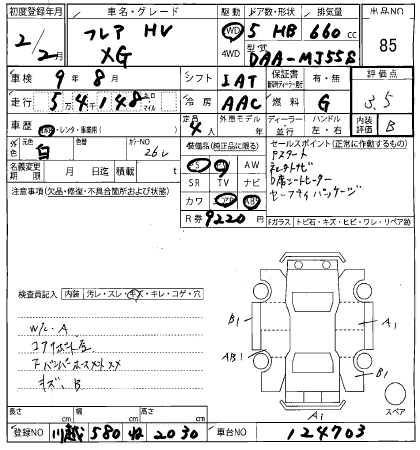 初度登録年月 車名・グレード 駆動 ドア数・形状 排気量 出品NO
2/2月 フレア HV XG 2WD 4WD 5 HB 660cc 85
型式 DAA-MJ55S
車検 9年8月 シフト IAT 保証書 有・無 評価点 3.5
走行 5万4千148 冷房 AAC 燃料 G 内装評価 B
車歴 レンタ・事業用 定員 4人 外車モデル年 ディーラー・並行 ハンドル 左・右
外色 元色 白 色替 カラーNO 26U 装備品(純正品に限る) セールスポイント(正常に作動するもの)
PS PW AW
SR TV ナビ
カワ エアB ABS
R券 9220円
Pスタート
D席シートヒーター
セーフティパッケージ
名義変更期限 月 日迄 積載 t
注意事項(欠品・修復・不具合箇所および状態)
Fガラス トビ石・キズ・ヒビ・ワレ・リペア跡
検査員記入 内装 汚レ・スレ・キズ・キレ・コゲ・穴
W/C・A
コアサポート歪
キズ.B
B1 A1
AB1 B1
A1
スペア
長さ cm 幅 cm 高さ cm
登録NO 川越 580 ね 2030 車台NO 124703